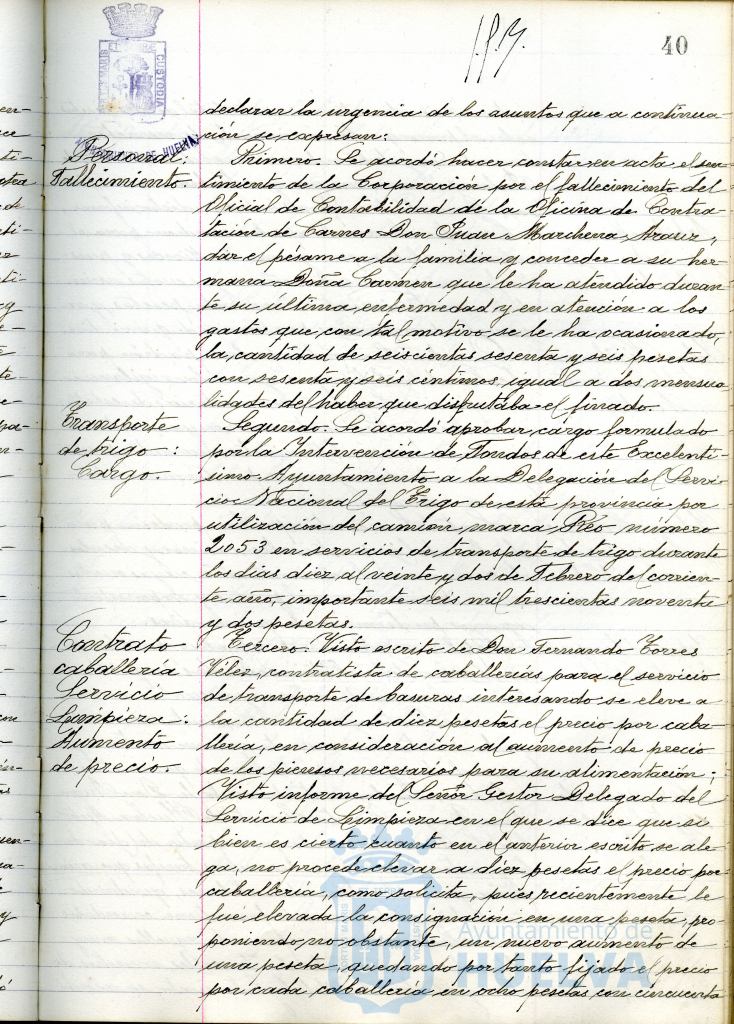 40
declarar la urgencia de los asuntos que a continua-
ción se expresan:
Personal:
Fallecimiento.
Primero. Se acordó hacer constar en acta el sen-
timiento de la Corporación por el fallecimiento del
Oficial de Contabilidad de la Oficina de Contra-
tación de Carnes Don Juan Marchena Arauz,
dar el pésame a la familia y conceder a su her-
mana Doña Carmen que le ha atendido duran-
te su última enfermedad y en atención a los
gastos que con tal motivo se le ha ocasionado,
la cantidad de seiscientas sesenta y seis pesetas
con sesenta y seis céntimos, igual a dos mensua-
lidades del haber que disfrutaba el finado.
Transporte
de trigo:
Cargo.
Segundo. Se acordó aprobar cargo formulado
por la Intervención de Fondos de este Excelentí-
simo Ayuntamiento a la Delegación del Servi-
cio Nacional del Trigo de esta provincia por
utilización del camión, marca Reo número
2053 en servicios de transporte de trigo durante
los dias diez al veinte y dos de Febrero del corrien-
te año, importante seis mil trescientas noventa
y dos pesetas.
Contrato
caballería
Servicio
Limpieza:
Aumento
de precio.
Tercero. Visto escrito de Don Fernando Torres
Vélez, contratista de caballerías para el servicio
de transporte de basuras interesando se eleve a
la cantidad de diez pesetas el precio por caba-
llería, en consideración al aumento de precio
de los piensos necesarios para su alimentación;
Visto informe del Señor Gestor Delegado del
Servicio de Limpieza en el que se dice que si
bien es cierto cuanto en el anterior escrito se ale-
ga, no procede elevar a diez pesetas el precio por
caballería, como solicita, pues recientemente le
fue elevada la consignación en una peseta, pro-
poniendo, no obstante, un nuevo aumento de
una peseta, quedando por tanto fijado el precio
por cada caballería en ocho pesetas con cincuenta
CUSTODIA
AYUNTAMIENTO DE HUELVA
Ayuntamiento de
HUELVA